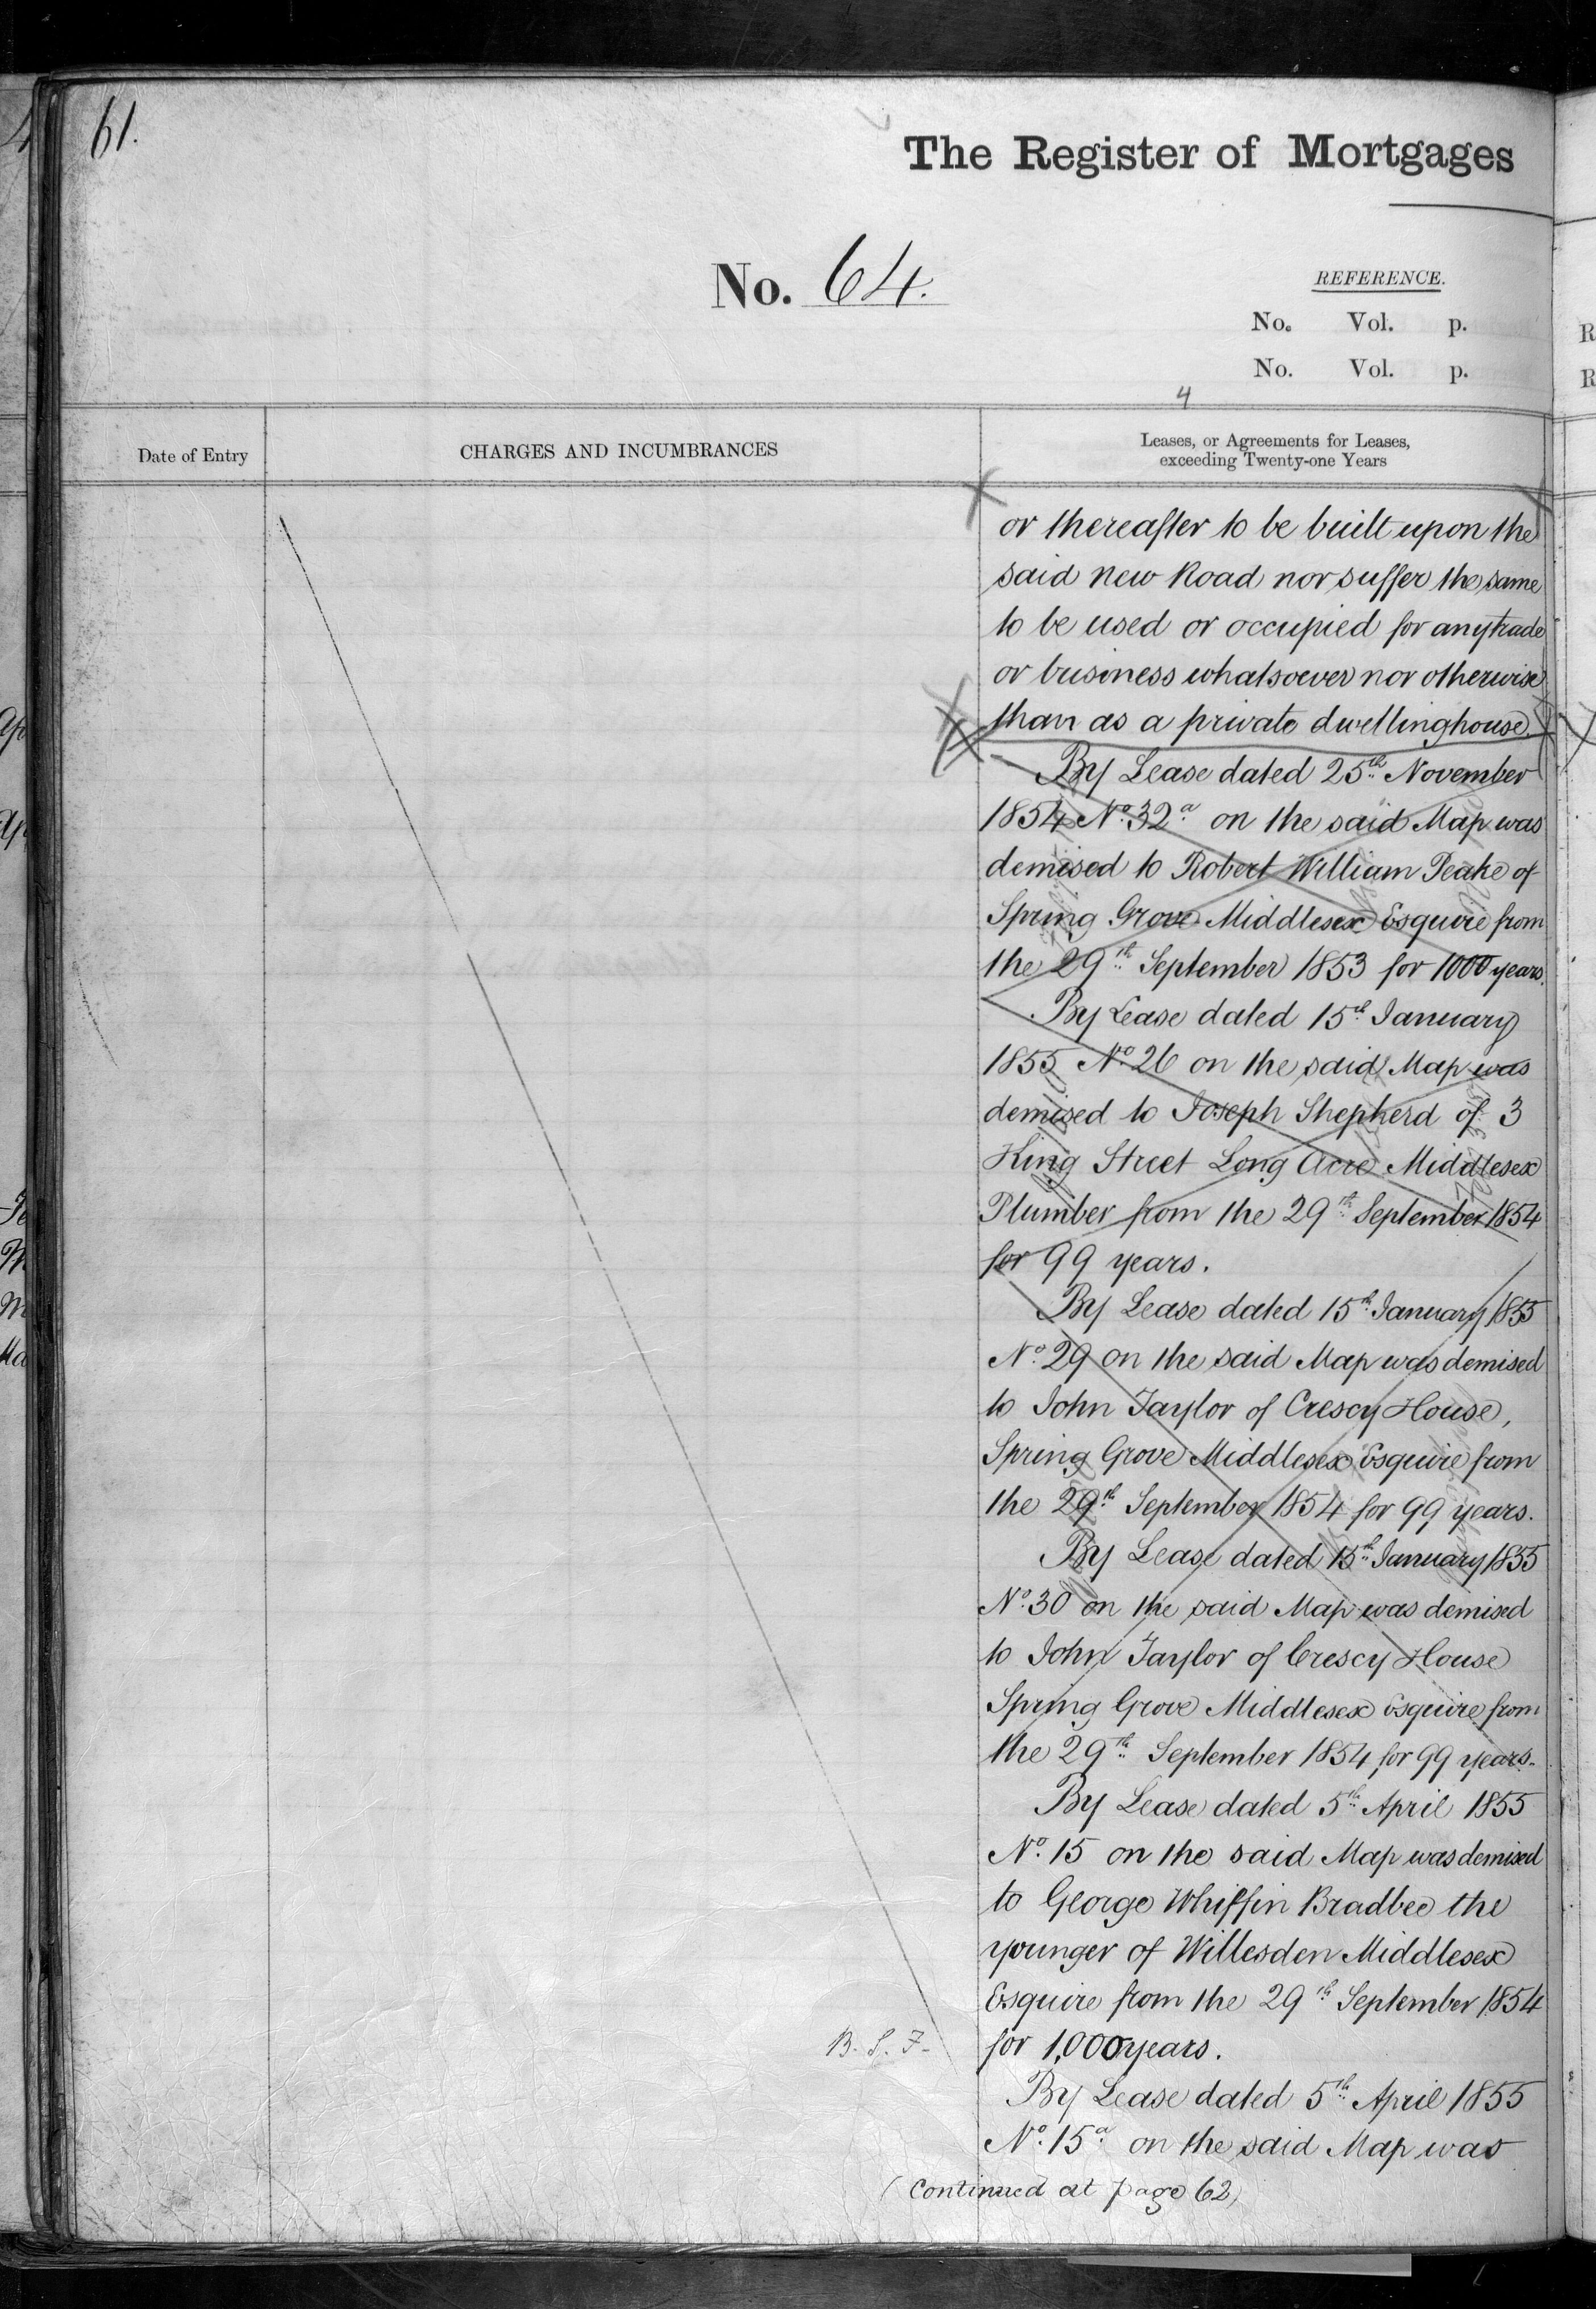 61.
The Register of Mortgages
No. 64.
REFERENCE.
No. Vol. p.
No. Vol. p.
4
Date of Entry
CHARGES AND INCUMBRANCES
Leases, or Agreements for Leases,
exceeding Twenty-one Years
or thereafter to be built upon the
said new Road nor suffer the same
to be used or occupied for any trade
or business whatsoever nor otherwise
than as a private dwellinghouse.
By Lease dated 25th November
1854 No. 32a on the said Map was
demised to Robert William Peake of
Spring Grove Middlesex Esquire from
the 29th September 1853 for 1000 years.
By Lease dated 15th January
1855 No 26 on the said Map was
demised to Joseph Shepherd of 3
King Street Long Acre Middlesex
Plumber from the 29th September 1854
for 99 years.
By Lease dated 15th January 1855
No. 29 on the said Map was demised
to John Taylor of Crescy House,
Spring Grove Middlesex Esquire from
the 29th September 1854 for 99 years.
By Lease dated 15th January 1855
No. 30 on the said Map was demised
to John Taylor of Crescy House
Spring Grove Middlesex Esquire from
the 29th September 1854 for 99 years.
By Lease dated 5th April 1855
No. 15 on the said Map was demised
to George Whiffin Bradbee the
younger of Willesden Middlesex
Esquire from the 29th September 1854
for 1,000 years.
B. S. F.
By Lease dated 5th April 1855
No. 15a on the said Map was
(Continued at page 62)